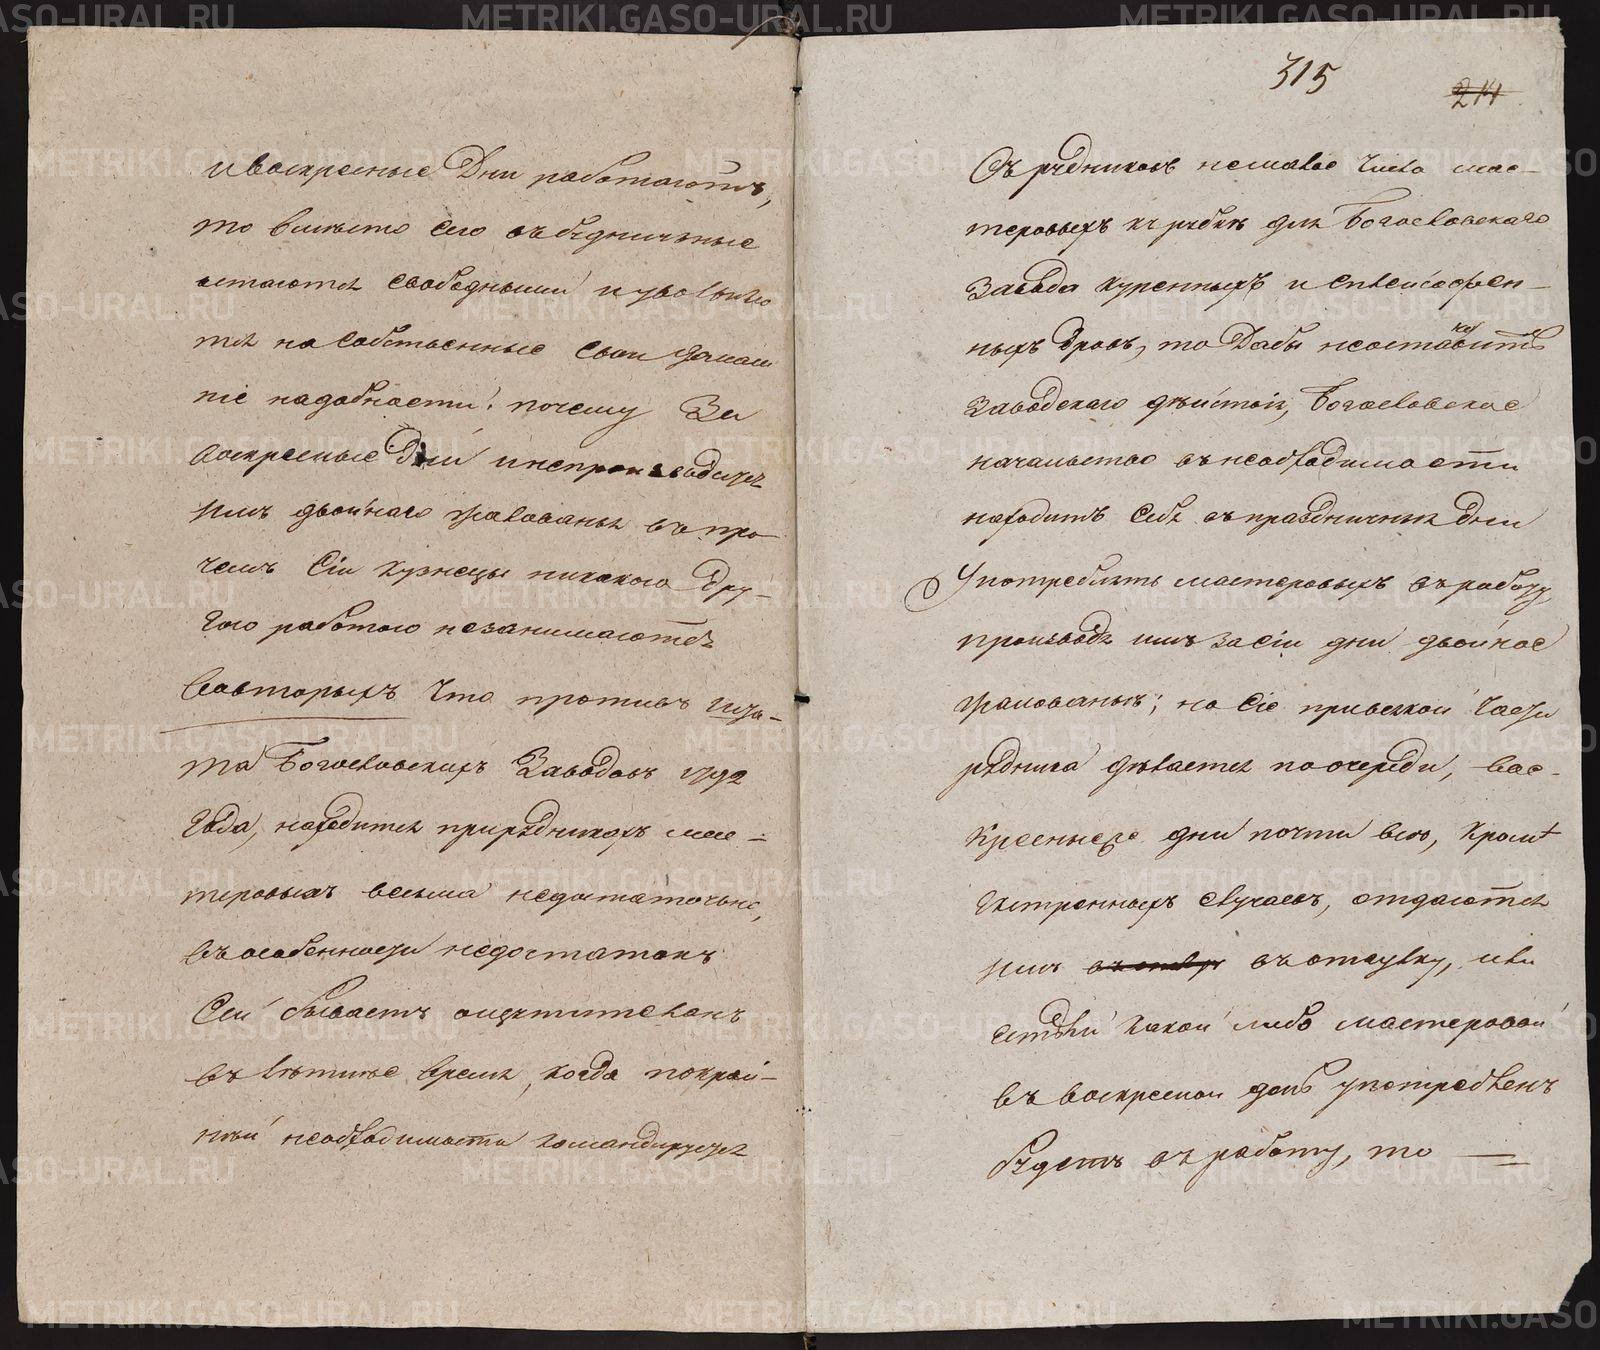 и воскресные Дни работаютъ,
то вместо сего въ будничные
остаются свободными и увольняю
тся на собственные свои домаш
ніе надобности: почему За
воскресные Дни и непроизводится
имъ двойнаго жалованья въ про
чемъ Сіи Кузнецы никакою Дру-
гою работою незанимаются
Вовторыхъ Что противъ Шта-
та Богословскихъ Заводовъ 1792
Года, находится прирудникахъ мас-
теровыхъ весьма недостаточно,
въ особенности недостатокъ
Сей бываетъ ощутителенъ
въ летнее время, когда покрай-
ней необходимости командируется
315
214
Съ рудниковъ немалое Число мас-
теровыхъ къ рубке для Богословскаго
Завода куренныхъ и сплейсофен-
ныхъ Дровъ, то Дабы неостановить
Заводскаго действія, Богословское
начальство въ необходимости
находитъ Себя въ праздничныя Дни
Употреблять мастеровыхъ въ работу,
производя имъ за сіи дни двойное
жалованье; но Сіе при всякой Части
рудника делается по очереди, вос-
кресные же дни почти всю, кроме
Екстренныхъ случаевъ, отдаются
имъ въ отпускъ, или
естьли какой либо мастеровой
въ воскресной день употребленъ
будетъ въ работу, то
METRIKI.GASO-URAL.RU